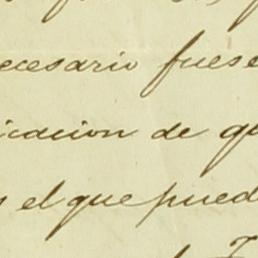 ecesario fuese
icacion de qu
s el que pued